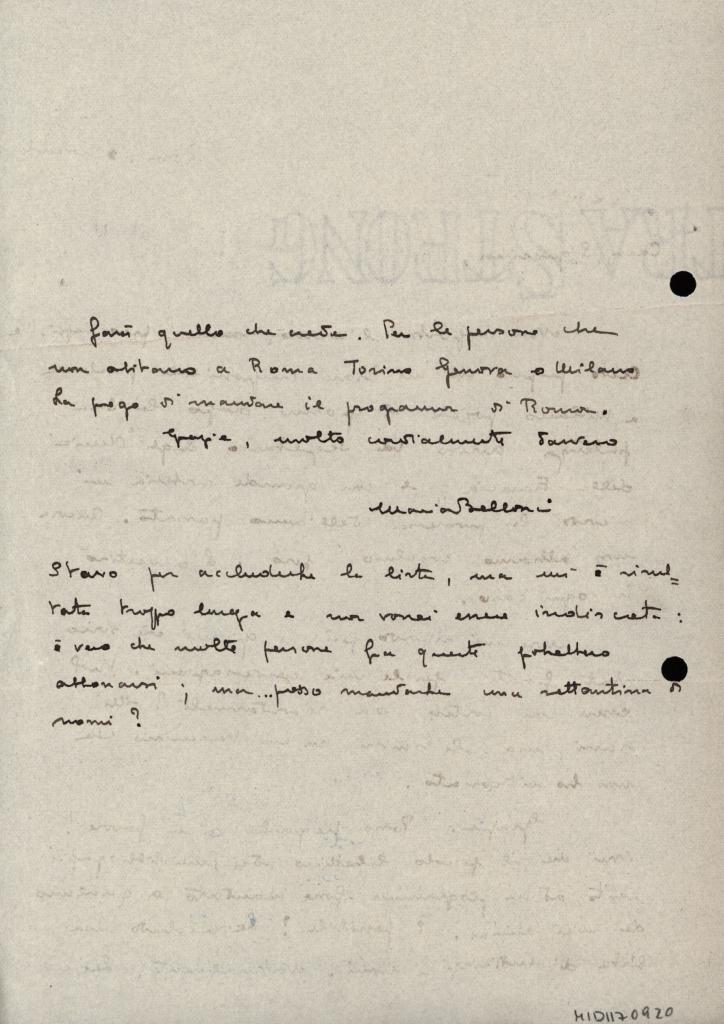 Farà quello che crede. Per le persone che
non abitano a Roma Torino Genova o Milano
La prego di mandare il programma di Roma.
Grazie, molto cordialmente davvero
Maria Bellonci
Stavo per accluderLe la lista, ma mi è risul=
tata troppo lunga e non vorrei essere indiscreta:
è vero che molte persone fra queste potrebbero
abbonarsi; ma...posso mandarLe una settantina di
nomi?
MID1170920